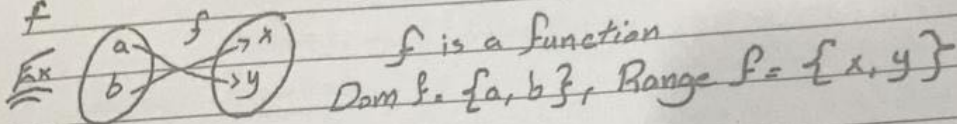 f
Ex a b f x y f is a function
Dom f = {a, b}, Range f = {x, y}